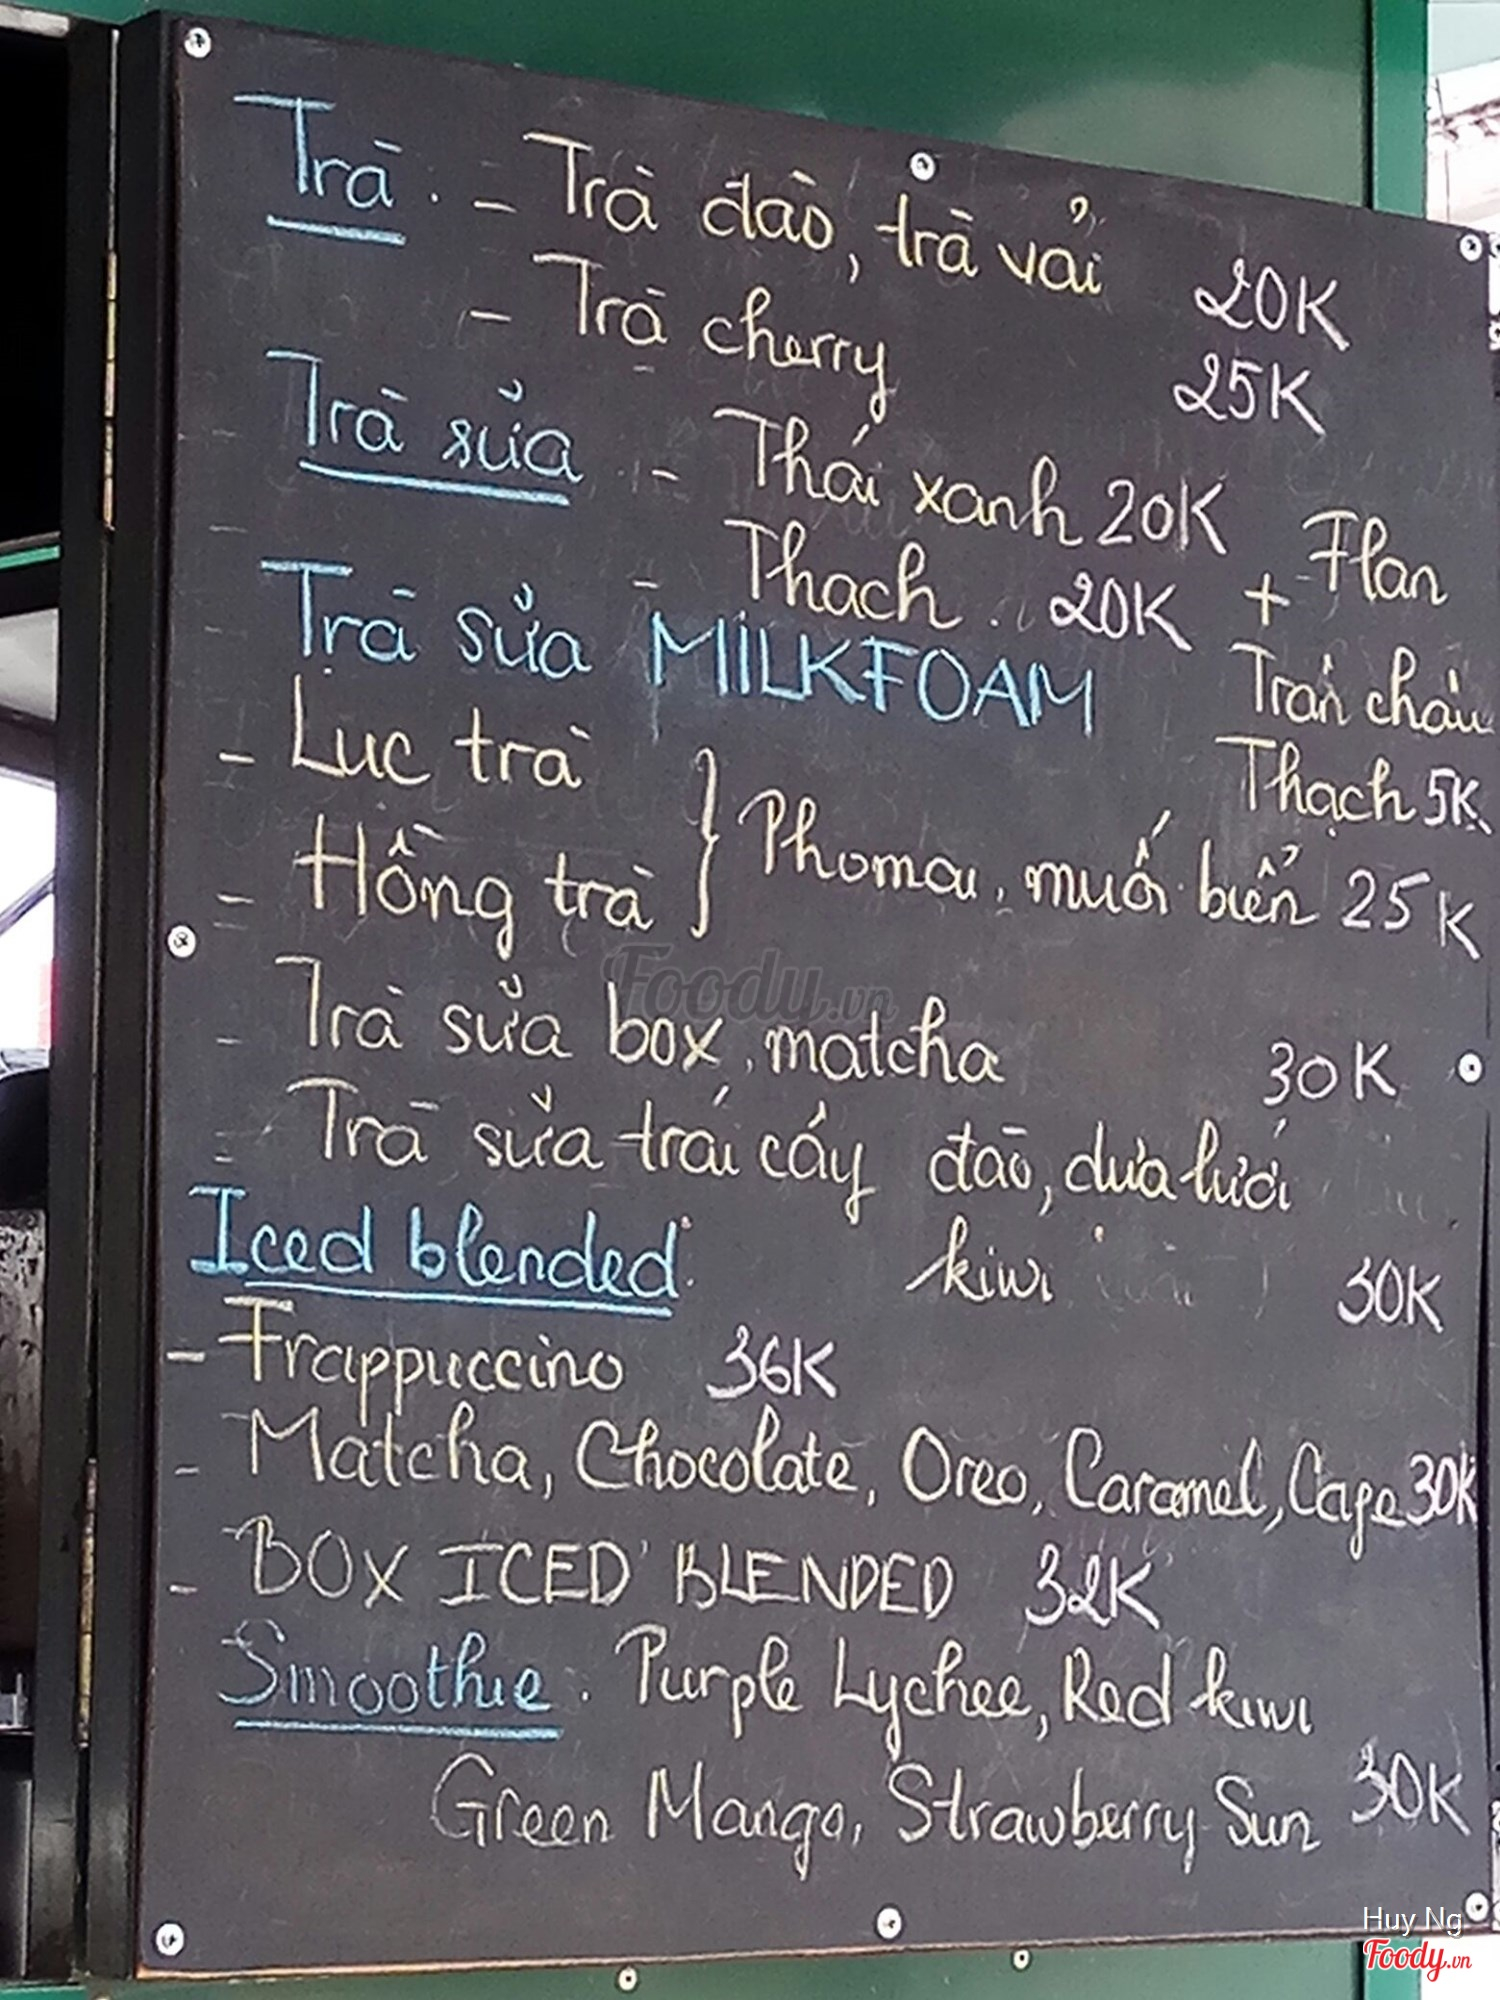 Trà - Trà đào, trà vải 20K
- Trà cherry 25K
Trà sữa - Thái xanh 20K + Flan
- Thạch 20K Trân châu
Trà sữa MILKFOAM Thạch 5K
- Lục trà
- Hồng trà } Phomai, muối biển 25K
- Trà sữa box, matcha 30K
- Trà sữa trái cấy đào, dưa lưới
kiwi 30K
Iced blended:
- Frappuccino 36K
- Matcha, Chocolate, Oreo, Caramel, Cafe 30K
- BOX ICED BLENDED 32K
Smoothie: Purple Lychee, Red kiwi
Green Mango, Strawberry Sun 30K
Foody.vn
Huy Ng
Foody.vn